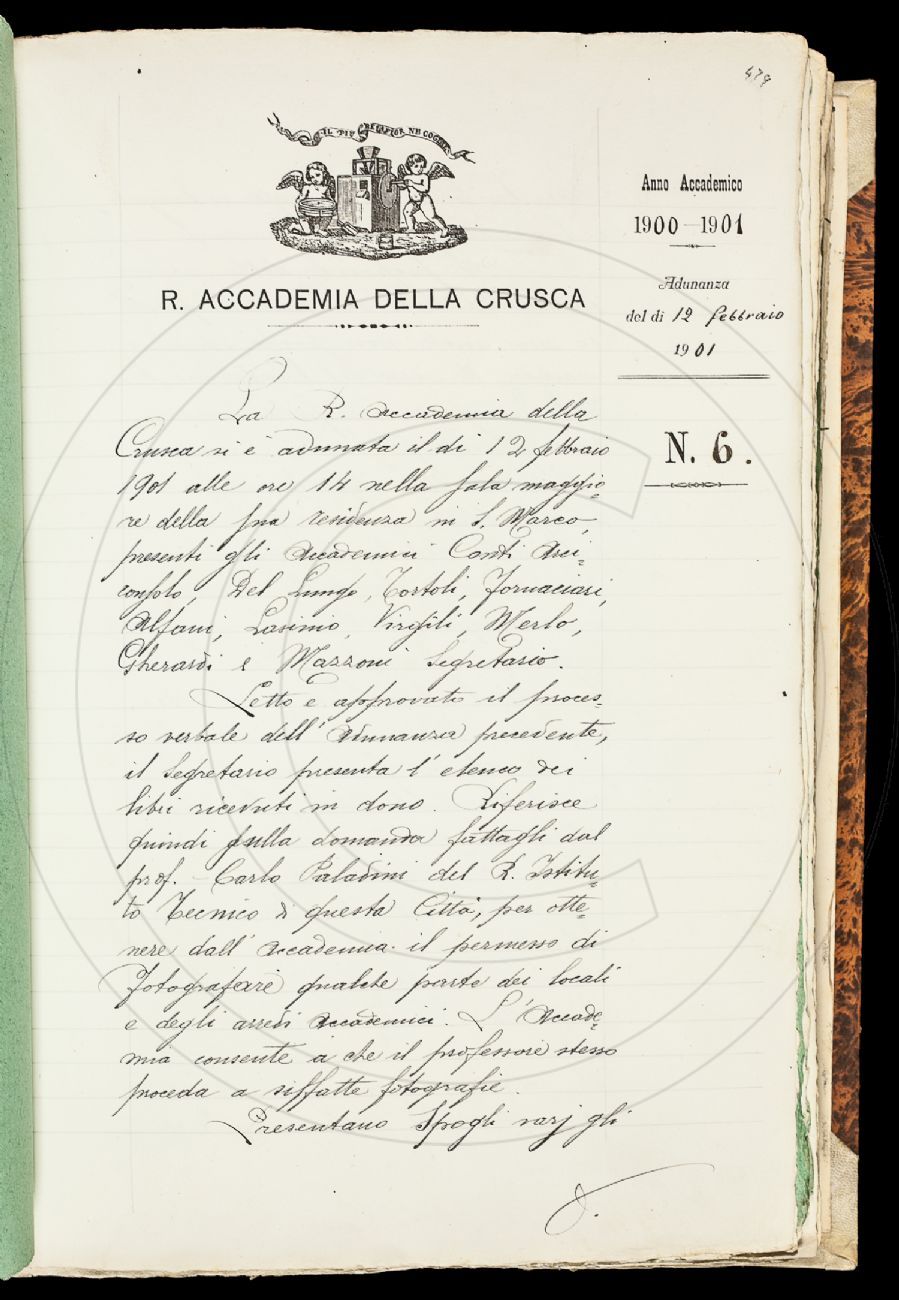 479
IL PIÙ BEL FIOR NE COGLIE
Anno Accademico
1900-1901
R. ACCADEMIA DELLA CRUSCA
Adunanza
del dì 12 febbraio
1901
N. 6.
La R. Accademia della
Crusca si è adunata il dì 12 febbraio
1901 alle ore 14 nella sala maggio-
re della sua residenza in S. Marco,
presenti gli Accademici Conti Arci-
consolo, Del Lungo, Tortoli, Fornaciari,
Alfani, Lasinio, Virgili, Merlo,
Gherardi e Mazzoni Segretario.
Letto e approvato il proces-
so verbale dell'adunanza precedente,
il Segretario presenta l'elenco dei
libri ricevuti in dono. Riferisce
quindi sulla domanda fattagli dal
prof. Carlo Paladini del R. Istitu-
to Tecnico di questa Città, per otte-
nere dall'Accademia il permesso di
fotografare qualche parte dei locali
e degli arredi accademici. L'Accade-
mia consente a che il professore stesso
proceda a siffatte fotografie.
Presentano Spogli varj gli